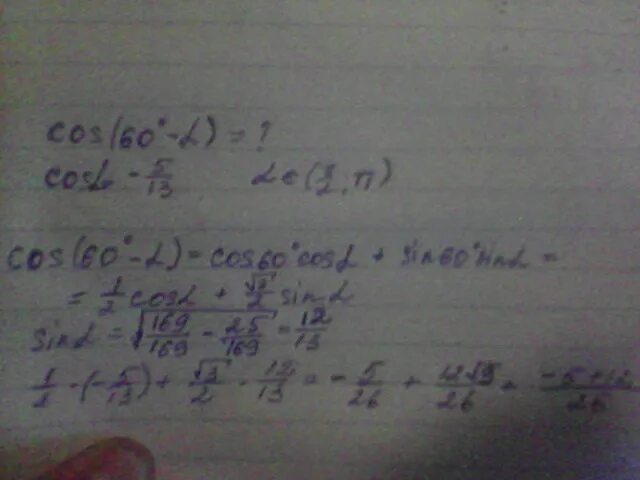 cos(60°-α) = ?
cosα - 5/13 α ∈ (π/2, π)
cos(60°-α) = cos60°cosα + sin60°sinα =
= 1/2 cosα + √3/2 sinα
sinα = √(169/169 - 25/169) = 12/13
1/2 · (-5/13) + √3/2 · 12/13 = -5/26 + 12√3/26 = -5+12/26